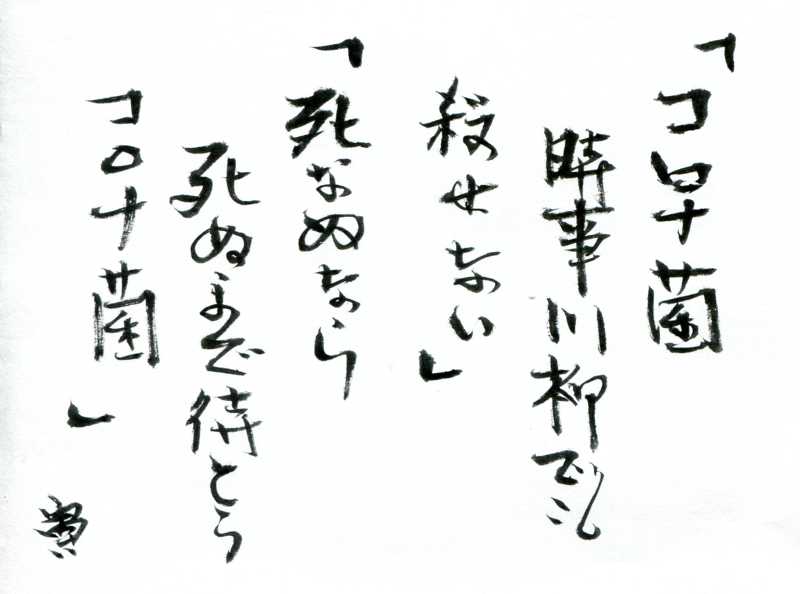 「コロナ菌
時事川柳でも
殺せない」
「死なぬなら
死ぬまで待とう
コロナ菌」